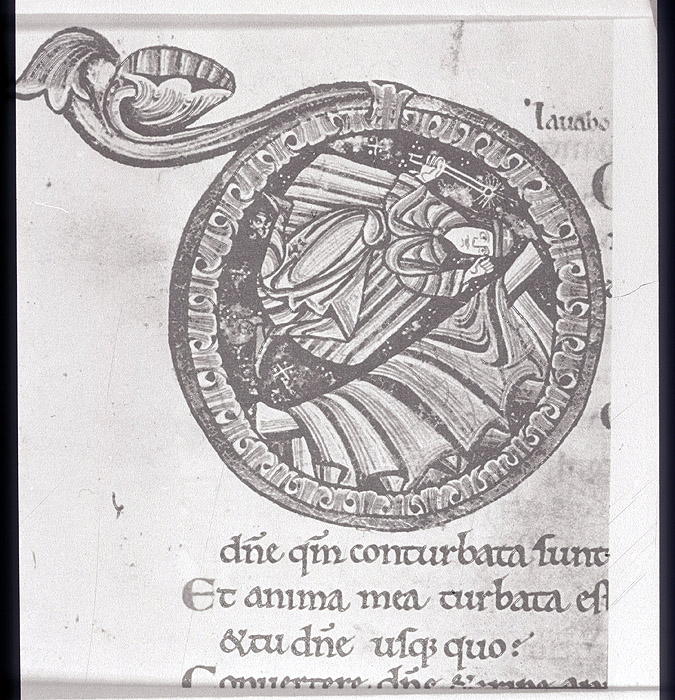 lauabo
dñe qm̄ conturbata sunt
Et anima mea turbata est
&tu dñe usq; quo:
Conuertere dñe &